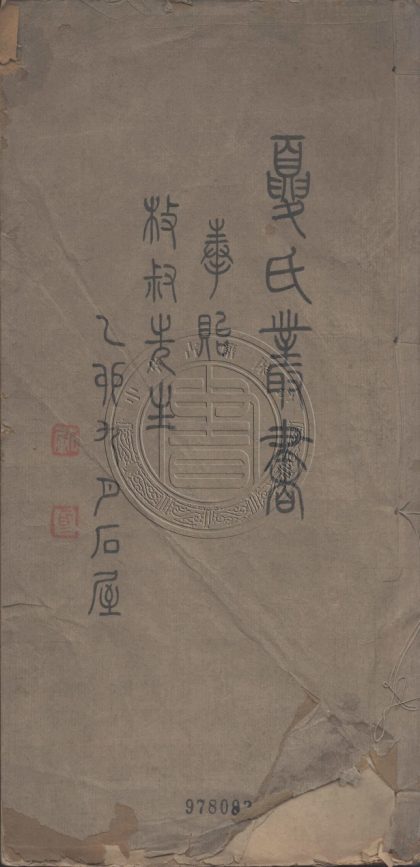 夏氏叢書
奉貽
枚叔先生
乙卯九月石屋
書